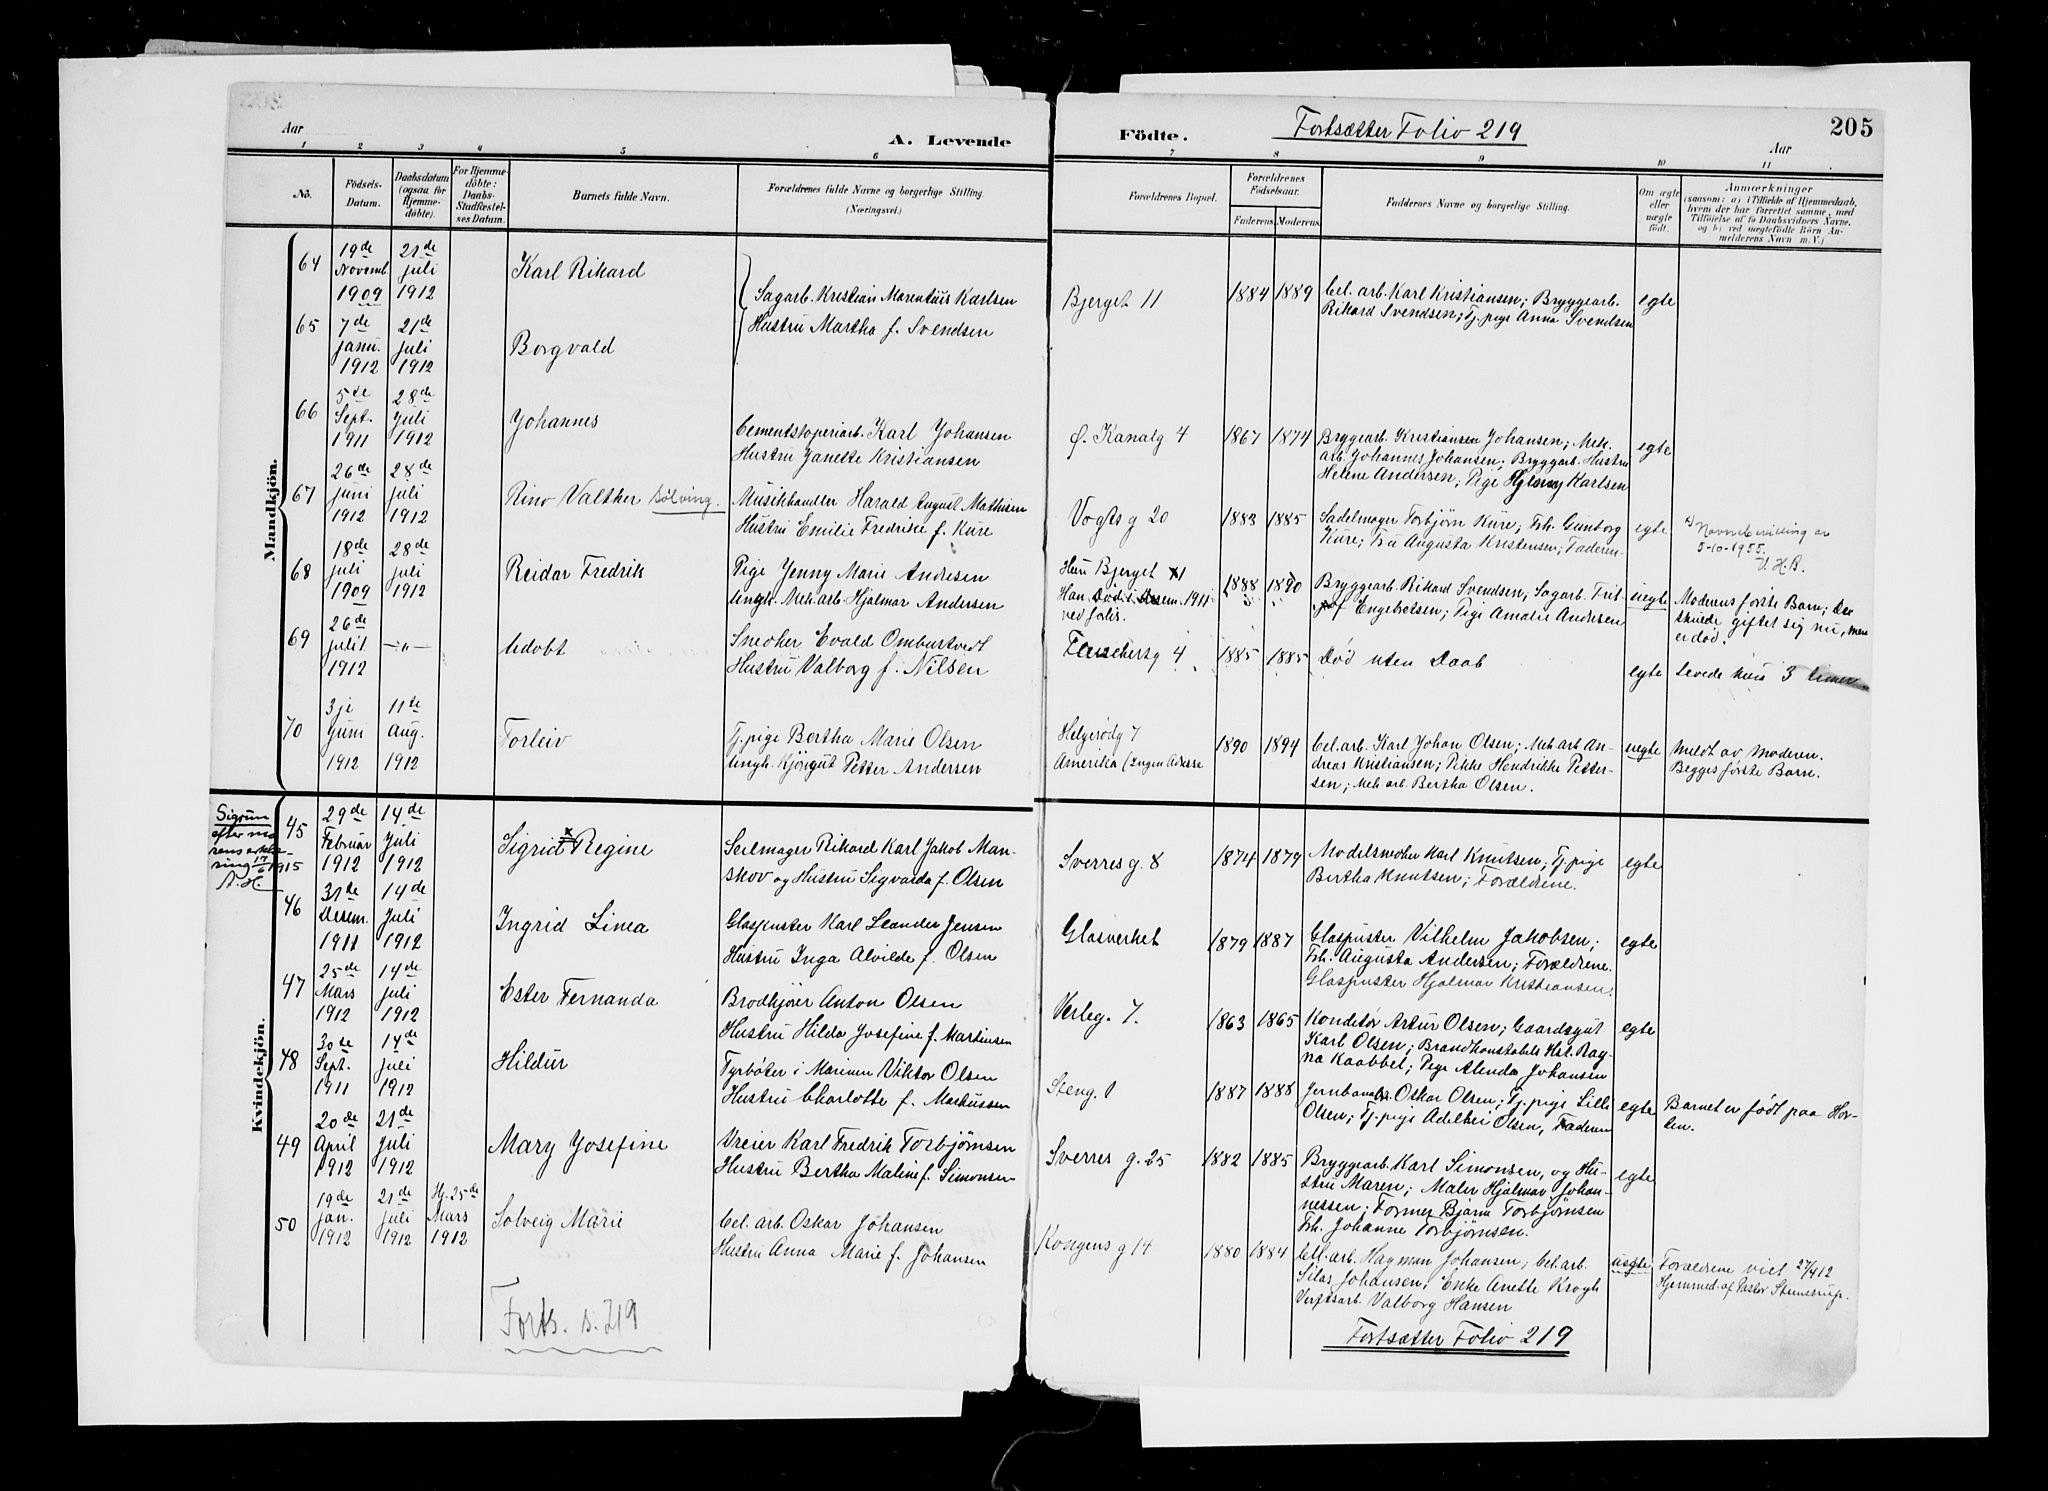 Aar
A. Levende
1 2 3 4 5 6
No.
Födsels-
Datum.
Daabsdatum
(ogsaa for
Hjemme-
döbte).
For Hjemme-
döbte:
Daabs-
Stadfæstel-
ses Datum.
Barnets fulde Navn.
Forældrenes fulde Navne og borgerlige Stilling.
(Næringsvei.)
Mandkjön.
64 19de Novemb. 1909 21de juli 1912 Karl Rikard
Sagarb. Kristian Marentius Karlsen
Hustru Martha f. Svendsen
65 7de janu. 1912 21de juli 1912 Borgvald
66 5te Sept. 1911 28de Juli 1912 Johannes
Cementstøperiarb. Karl Johansen
Hustru Janette Kristiansen
67 26de juni 1912 28de juli 1912 Rino Valther Sølving.
Musikhandler Harald August Mathisen
Hustru Emilie Fredrike f. Kure
68 18de juli 1909 28de juli 1912 Reidar Fredrik
Pige Jenny Marie Andresen
Ungk. Mek. arb. Hjalmar Andersen
69 26de juli 1912 —"— Udøbt
Snedker Evald Ombustvedt
Hustru Valborg f. Nilsen
70 3je Juni 1912 11te Aug. 1912 Torleiv
Tj. pige Bertha Marie Olsen
Ungk. Kjøregut Petter Andersen
Kvindekjön.
Sigrun
efter mo
rens erklæ-
ring 17/6 1915
A. H.
45 29de Februar 1912 14de Juli 1912 Sigrid x Regine
Seilmager Rikard Karl Jakob Man-
skov og Hustru Sigvarda f. Olsen
46 31te Desem. 1911 14de Juli 1912 Ingrid Linea
Glaspuster Karl Leander Jensen
Hustru Inga Alvilde f. Olsen
47 25de Mars 1912 14de juli 1912 Ester Fernanda
Brødkjører Anton Olsen
Hustru Hilda Josefine f. Martinsen
48 30te Sept. 1911 14de juli 1912 Hildur
Fyrbøter i Marinen Viktor Olsen
Hustru Charlotte f. Markussen
49 20de April 1912 21de Juli 1912 Mary Josefine
Vreier Karl Fredrik Torbjørnsen
Hustru Bertha Maline f. Simonsen
50 19de jan. 1912 21de juli 1912 Hj. 25de Mars 1912 Solveig Marie
Cel. arb. Oskar Johansen
Hustru Anna Marie f. Johansen
Forts. s. 219
Födte.
Fortsætter Folio 219
205
Aar
7 8 9 10 11
Forældrenes Bopæl.
Forældrenes
Födselsaar.
Faderens. Moderens.
Faddernes Navne og borgerlige Stilling.
Om ægte
eller
uægte
födt.
Anmærkninger
(saasom: a) i Tilfælde af Hjemmedaab,
hvem der har forrettet samme, med
Tilföielse af to Daabsvidners Navne.
og b) ved uægtefödte Börn An-
melderens Navn m. V.)
Bjerget 11 1884 1889 Cel. arb. Karl Kristiansen; Bryggearb.
Rikard Svendsen; Tj. pige Anna Svendsen egte
Ø. Kanalg 4 1867 1874 Bryggearb. Kristiansen Johansen; Mek.
arb. Johannes Johansen; Bryggarb. Hustru
Helene Andersen; Pige Karlsen egte
Vogts g 20 1883 1885 Sadelmager Torbjørn Kure; Frk. Gunborg
Kure; Fru Augusta Kristensen; Faderen egte
Navnebevilling av
5-10-1955.
V. H. B.
Hun Bjerget 11
Han Død i Desem. 1911
ved forlis. 1888 1890 Bryggearb. Rikard Svendsen; Sagarb. Frit-
jof Engebretsen; Pige Amalie Andresen uegte
Moderens første Barn; De
skulde giftet sig nu, men
er død.
4 1885 1885 Død uten Daab egte Levede kun 3 timer
Helgerødg 7
Amerika (Ingen Adresse 1890 1894 Cel. arb. Karl Johan Olsen; Mek arb An-
dreas Kristiansen; Pike Hendrikke Petter-
sen; Mek. arb. Bertha Olsen. uegte
Meldt av Moderen.
Begges første Barn.
Sverres g. 8 1874 1879 Modelsnedker Karl Knutsen; Tj. pige
Bertha Knutsen; Forældrene. egte
Glasverket 1879 1887 Glaspuster Vilhelm Jakobsen;
Frk. Augusta Andersen; Forældrene.
Glaspuster Hjalmar Kristiansen. egte
Verksg. 7. 1863 1865 Konditor Artur Olsen; Gaardsgut
Karl Olsen; Brandkonstabels Hst. Rag-
na Kaabbel; Pige Alenda Johansen egte
Steng. 1 1887 1888 Jernbanearb. Oskar Olsen; Tj. pige Lilli
Olsen; Tj. pige Adelhei Olsen, Faderen egte
Barnet er født paa Hor-
ten.
Sverres g. 25 1882 1885 Bryggearb. Karl Simonsen, og Hu-
stru Maren; Maler Hjalmar Johan-
nessen; Former Bjarne Torbjørnsen
Frk. Johanne Torbjørnsen. egte
Kongens g 14 1880 1884 Cel. arb. Hagman Johansen; Cel. arb.
Silas Johansen; Enke Anette Krogh
Verftsarb. Valborg Hansen uegte
Forældrene viet 27/4 12
Hjemmed. af Pastor Stenstrup.
Fortsætter Folio 219